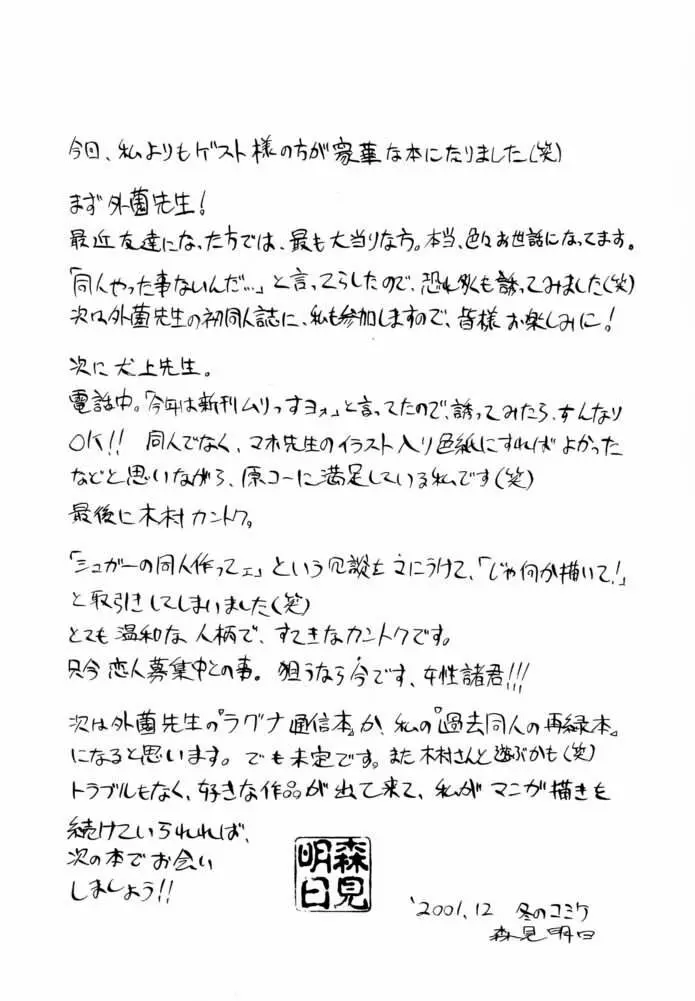 今回、私よりもゲスト様の方が豪華な本になりました(笑)
まず外薗先生!
最近友達になった方では、最も大当りな方。本当、色々お世話になってます。
「同人やった事ないんだ…」と言ってらしたので、恐れ外も誘ってみました(笑)
次は外薗先生の初同人誌に、私も参加しますので、皆様お楽しみに!
次に犬上先生。
電話中。「今年は新刊ムリっすヨォ」と言ってたので、誘ってみたら、すんなり
OK!! 同人でなく、マホ先生のイラスト入り色紙にすればよかった
などと思いながら、原コーに満足している私です(笑)
最後に木村カントク。
「シュガーの同人作ってェ」という冗談をマにうけて、「じゃ何か描いて!」
と取引きしてしまいました(笑)
とても温和な人柄で、すてきなカントクです。
只今恋人募集中との事。狙うなら今です、女性諸君!!!
次は外薗先生の『ラグナ通信本』か、私の『過去同人の再録本』
になると思います。でも未定です。また木村さんと遊ぶかも(笑)
トラブルもなく、好きな作品が出て来て、私がマンガ描きを
続けていられれば、
次の本でお会い
しましょう!!
森見
明日
'2001.12 冬のコミケ
森見明日